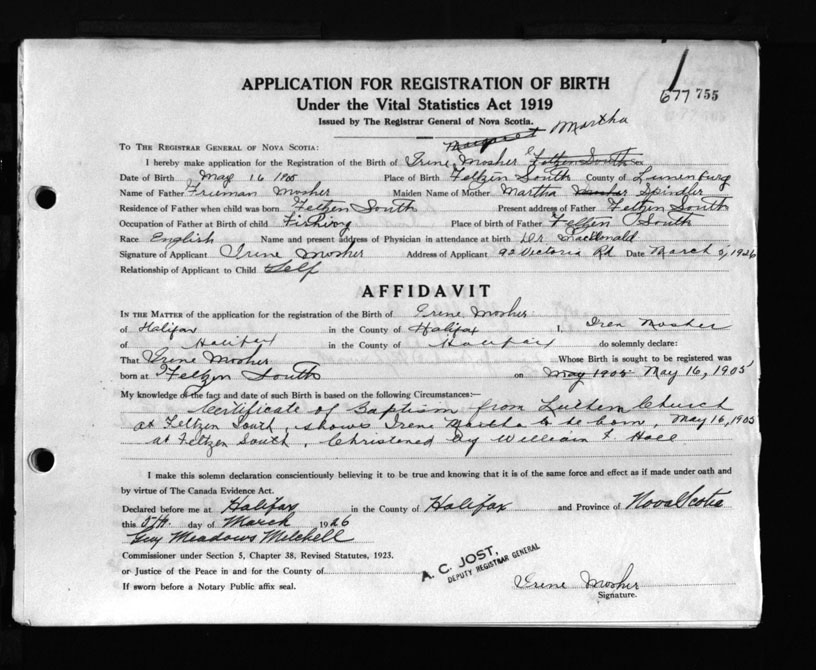 APPLICATION FOR REGISTRATION OF BIRTH
Under the Vital Statistics Act 1919
677 755
Issued by The Registrar General of Nova Scotia.
Margaret Martha
TO THE REGISTRAR GENERAL OF NOVA SCOTIA:
I hereby make application for the Registration of the Birth of Irene Mosher Feltzen South Sex
Date of Birth May 16 1905 Place of Birth Feltzen South County of Lunenburg
Name of Father Frieman Mosher Maiden Name of Mother Martha Mosher Spindler
Residence of Father when child was born Feltzen South Present address of Father Feltzen South
Occupation of Father at Birth of child Fishing Place of birth of Father Feltzen South
Race English Name and present address of Physician in attendance at birth Dr. MacDonald
Signature of Applicant Irene Mosher Address of Applicant 92 Victoria Rd Date March 5, 1926
Relationship of Applicant to Child Self
AFFIDAVIT
IN THE MATTER of the application for the registration of the Birth of Irene Mosher
of Halifax in the County of Halifax I, Iren Mosher
of Halifax in the County of Halifax do solemnly declare:
That Irene Mosher Whose Birth is sought to be registered was
born at Feltzen South on May 1905 May 16, 1905
My knowledge of the fact and date of such Birth is based on the following Circumstances:—
Certificate of Baptism from Luthern Church
at Feltzen South, shows Irene Martha to be born, May 16, 1905
at Feltzen South, Christened by William F. Hall
I make this solemn declaration conscientiously believing it to be true and knowing that it is of the same force and effect as if made under oath and
by virtue of The Canada Evidence Act.
Declared before me at Halifax in the County of Halifax and Province of Nova Scotia
this 5th day of March 1926
Guy Meadows Mitchell
Commissioner under Section 5, Chapter 38, Revised Statutes, 1923.
or Justice of the Peace in and for the County of
If sworn before a Notary Public affix seal.
A. C. JOST,
DEPUTY REGISTRAR GENERAL
Irene Mosher
Signature.